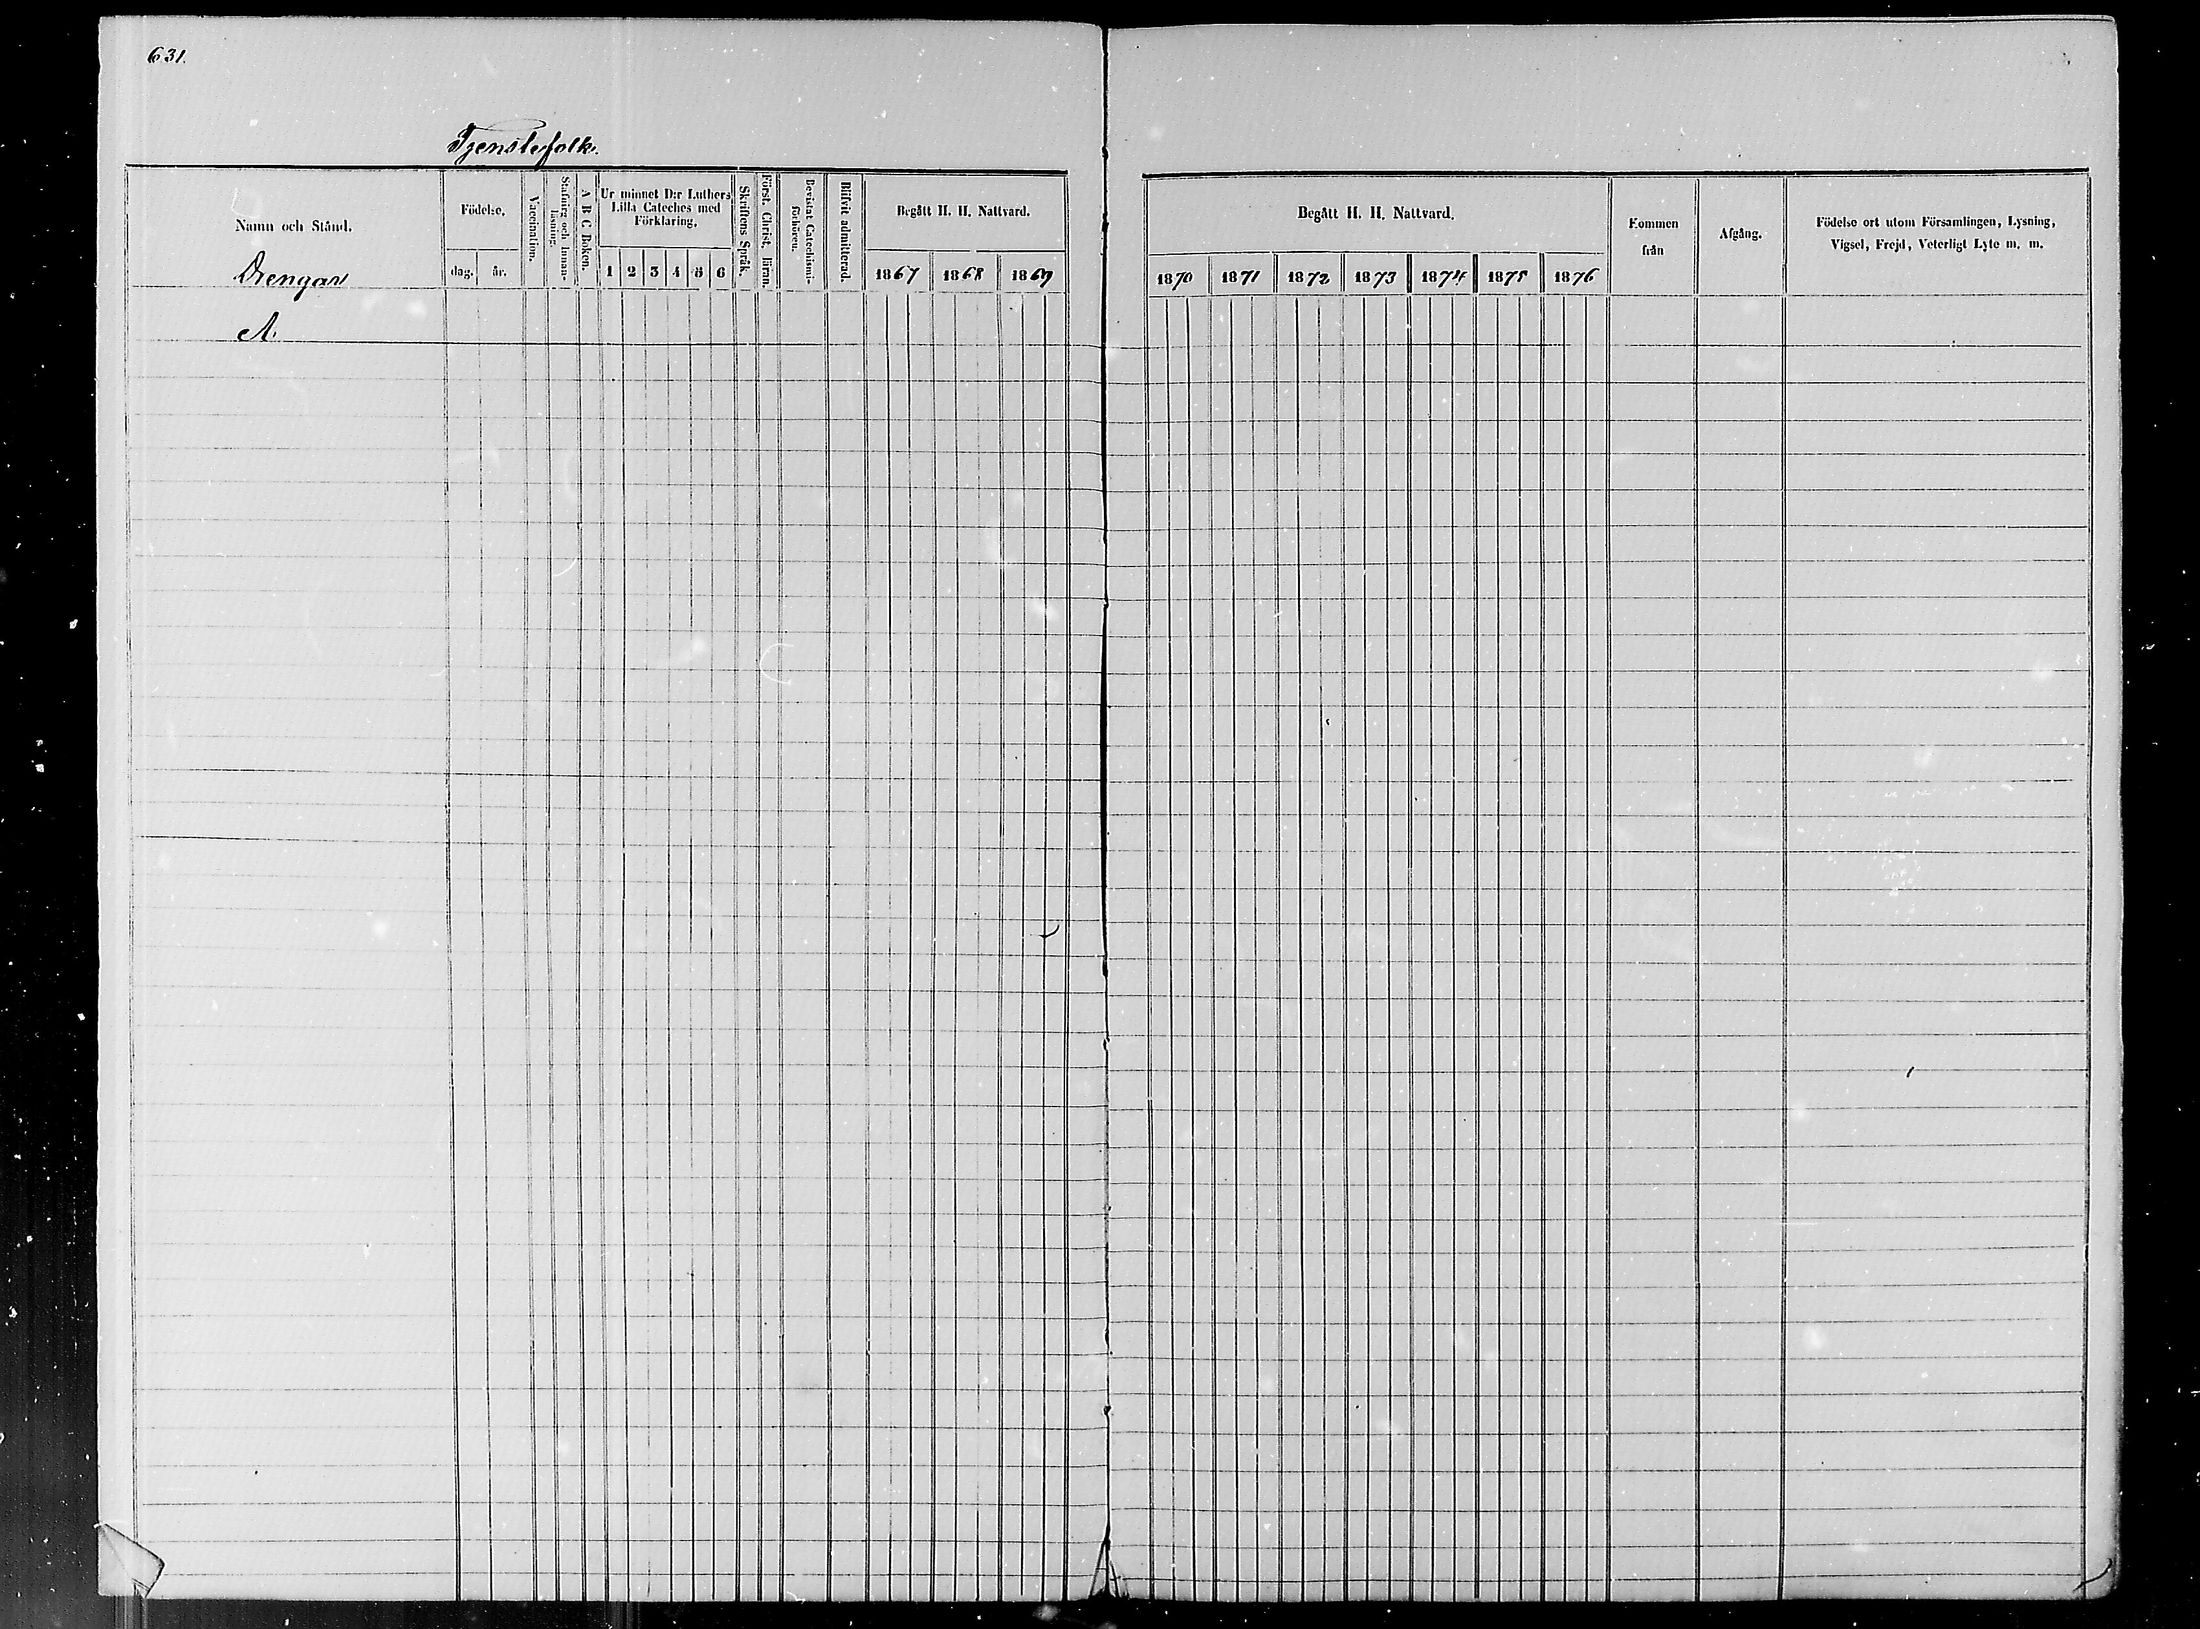 631.
Tjenstefolk.
Namn och Stånd.
Drengar
A.
Födelse.
dag.
år.
Vaccination.
Stafning och Innan-
läsning.
A B C Boken.
Ur minnet D:r Luthers
Lilla Cateches med
Förklaring.
1 2 3 4 5 6
Skriftens Språk.
Först. Christ. läran.
Bevistat Catechismi-
förhören.
Blifvit admitterad.
Begått H. H. Nattvard.
1867 1868 1869
Begått H. H. Nattvard.
1870 1871 1872 1873 1874 1875 1876
Kommen
från
Afgång.
Födelse ort utom Församlingen, Lysning,
Vigsel, Frejd, Veterligt Lyte m. m.